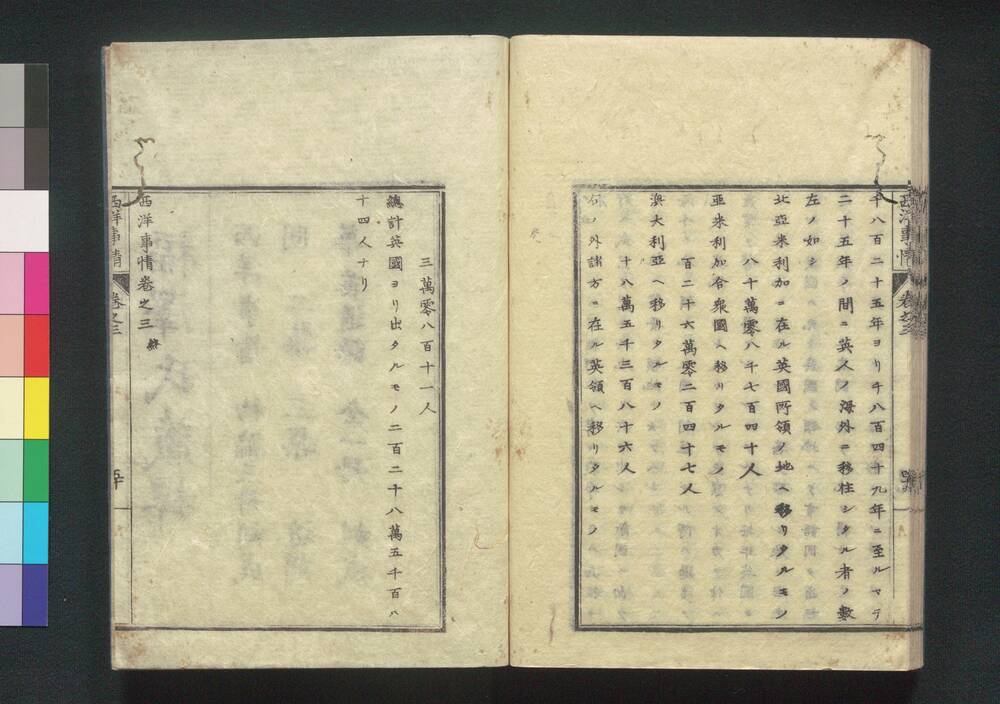 千八百二十五年ヨリ千八百四十九年ニ至ルマデ
二十五年ノ間ニ英人ノ海外ニ移住シタル者ノ數
左ノ如シ
北亞米利加ニ在ル英國所領ノ地ヘ移リタルモノ
八十萬零八千七百四十人
亜米利加合衆國ヘ移リタルモノ
百二十六萬零二百四十七人
澳大利亞ヘ移リタルモノ
十八萬五千三百八十六人
ノ外諸方ニ在ル英領ヘ移リタルモノ
西洋事情
卷之三
三萬零八百十一人
總計英國ヨリ出タルモノ二百二十八萬五千百八
十四人ナリ
西洋事情卷之三 終
西洋事情
卷之三
五十